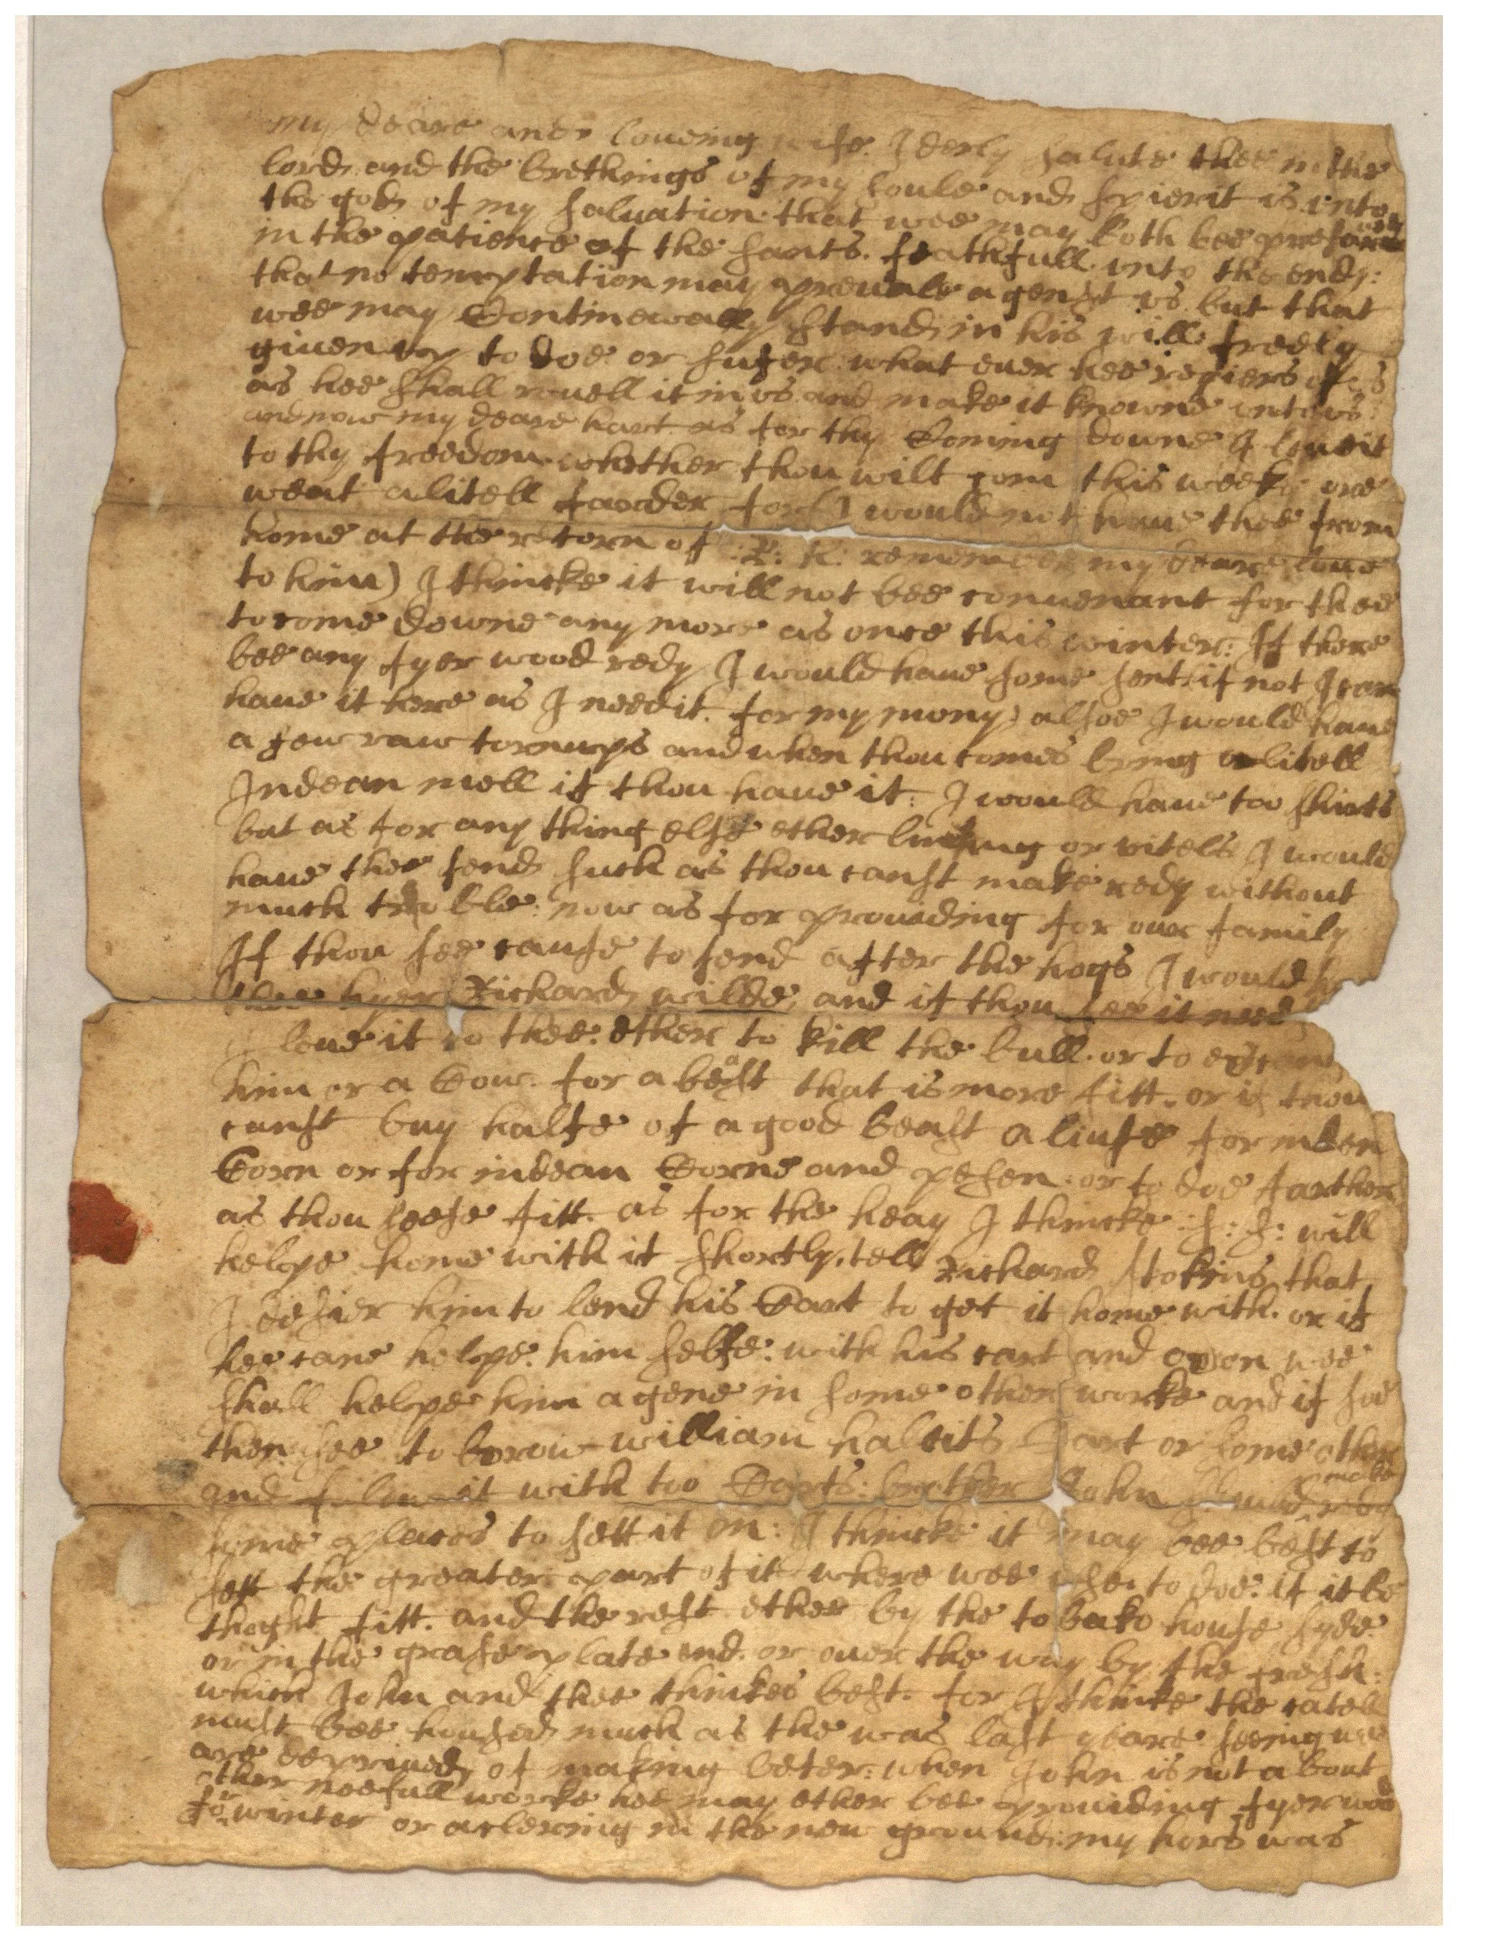 my deare and loveing wife I derly salute thee in the
lord and the brethings of my soule and spierit is unto
the god of my salvation that wee may both bee preserved
in the patience of the sants. feathfull unto the end:
that no temptation may aprevale agenst us but that
wee may Continewally stand in his will freely
given up to doe or sufer what ever hee regiers of us
as hee shall revell it in us and make it knowne unto us:
and now my deare hart as for thy Coming downe I leve it
to thy freedom whether thou wilt com this weeke ore
weat a litell faorder for (I would not have thee from
home at the retorn of : R: h: remember my deare love
to him) I thincke it will not bee convenant for thee
to come downe any more as once this winter: If there
bee any fyer wood redy I would have some sent: if not I can
have it here as I need it. for my mony: alsoe I would have
a few raw tornups and when thou comes bring a litell
Indean mell if thou have it: I would have too shirts
but as for any thing else ether linsing or vitels I would
have thee send such as thou canst make redy without
much troble: now as for providing for our family
If thou see cause to send after the hogs I would
thee hyer Richard wilde, and if thou see it need
I leve it to thee: ether to kill the bull. or to
him or a Cow. for a beast that is more fitt. or if thou
canst buy halfe of a good beast a live for inden
Corn or for indean Corne and pesen. or to doe farther
as thou seese fitt. as for the heay I thincke : S: S: will
helpe home with it shortly. tell Richard stokins that
I desier him to lend his Cart to get it home with. or if
hee cane helpe. him selfe: with his cart and oxon wee
shall helpe him agene in some other worke and if soe
then see to borow william halcits Cart or some other
and it with too Carts: brother John make redy
some places to sett it on: I thincke it may bee best to
sett the greater part of it where wee use to doe. if it be
thoght fitt. and the rest ether by the tobako house syde
or in the grase plate end. or over the way by the fresh:
which John and thee thinkes best. for I thinke the catell
must bee housed much as the was last yeare seeing wee
are deprived of making beter: when John is not about
other neefull worke hee may ether bee providing fyer wood
for winter or aclering in the new ground: my hors was